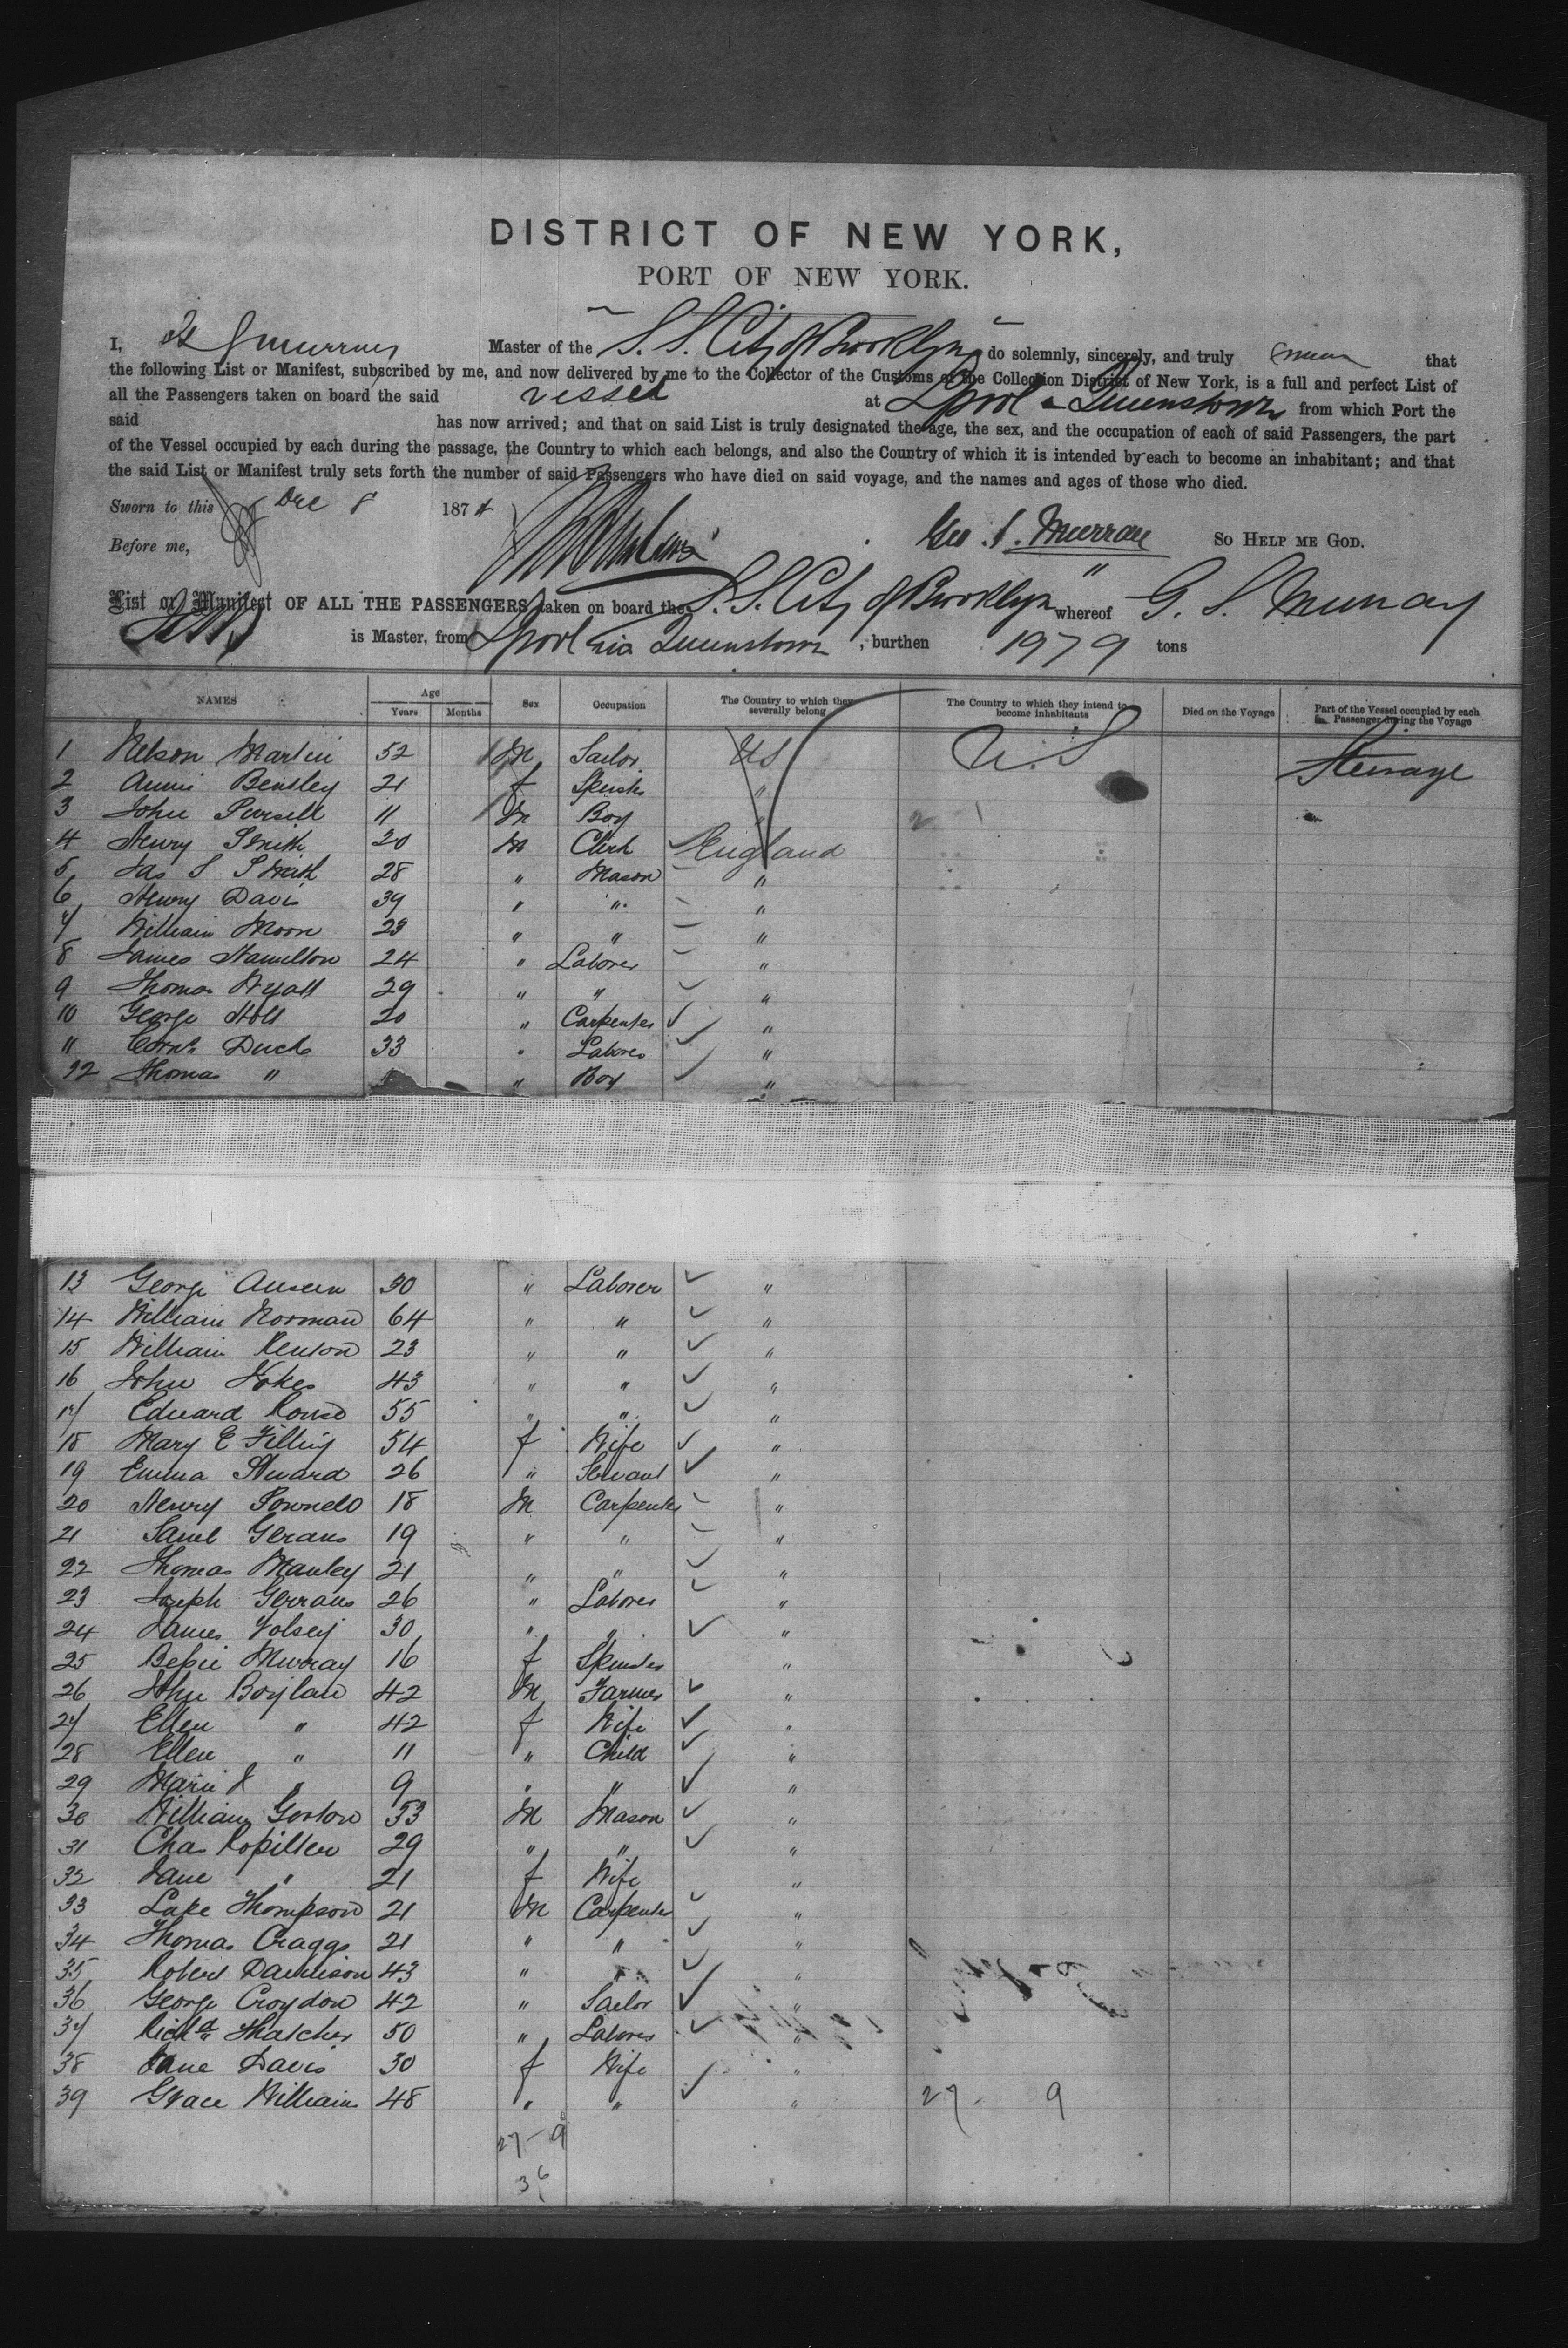 DISTRICT OF NEW YORK,
PORT OF NEW YORK.
I, Murray Master of the S. S. City of Brooklyn do solemnly, sincerely, and truly swear that
the following List or Manifest, subscribed by me, and now delivered by me to the Collector of the Customs of the Collection District of New York, is a full and perfect List of
all the Passengers taken on board the said vessel at Lpool & Queenstown from which Port the
said has now arrived; and that on said List is truly designated the age, the sex, and the occupation of each of said Passengers, the part
of the Vessel occupied by each during the passage, the Country to which each belongs, and also the Country of which it is intended by each to become an inhabitant; and that
the said List or Manifest truly sets forth the number of said Passengers who have died on said voyage, and the names and ages of those who died.
Sworn to this Dec 8 1874
Geo. S. Murray SO HELP ME GOD.
Before me,
List or Manifest OF ALL THE PASSENGERS taken on board the S. S. City of Brooklyn whereof G. S. Murray
is Master, from Lpool via Queenstown, burthen 1979 tons
NAMES Age Years Months Sex Occupation The Country to which they severally belong The Country to which they intend to become inhabitants Died on the Voyage Part of the Vessel occupied by each Passenger during the Voyage
1 Nelson Martin 52 M Sailor US U.S Steerage
2 Annie Bensley 21 f Spinster "
3 John Pursell 11 M Boy "
4 Henry Smith 20 M Clerk England
5 Jas S Smith 28 " Mason "
6 Henry Davis 39 " " "
7 William Moon 23 " " "
8 James Hamilton 24 " Laborer "
9 Thomas Wyatt 29 " " "
10 George Holt 20 " Carpenter "
11 Corns Duck 33 " Laborer "
12 Thomas " " Boy "
13 George 30 " Laborer "
14 William Norman 64 " " "
15 William Renson 23 " " "
16 John Nokes 43 " " "
17 Edward Rowse 55 " " "
18 Mary E Filling 54 f Wife "
19 Emma Steward 26 " Servant "
20 Henry 18 M Carpenter "
21 Saml Gerans 19 " " "
22 Thomas Manley 21 " " "
23 Joseph Gerrans 26 " Laborer "
24 James 30 " " "
25 Bessie Murray 16 f Spinster "
26 John Boylan 42 M Farmer "
27 Ellen " 42 f Wife "
28 Ellen " 11 " Child "
29 Marie J " 9 " " "
30 William Gorton 53 M Mason "
31 Chas 29 " " "
32 Jane " 21 f Wife "
33 Luke Thompson 21 M Carpenter "
34 Thomas Craggs 21 " " "
35 Robert Dawnison 43 " " "
36 George Croydon 42 " Sailor "
37 Richd Thatcher 50 " Laborer "
38 Jane Davis 30 f Wife "
39 Grace William 48 " " " 27. 9
27-9
36